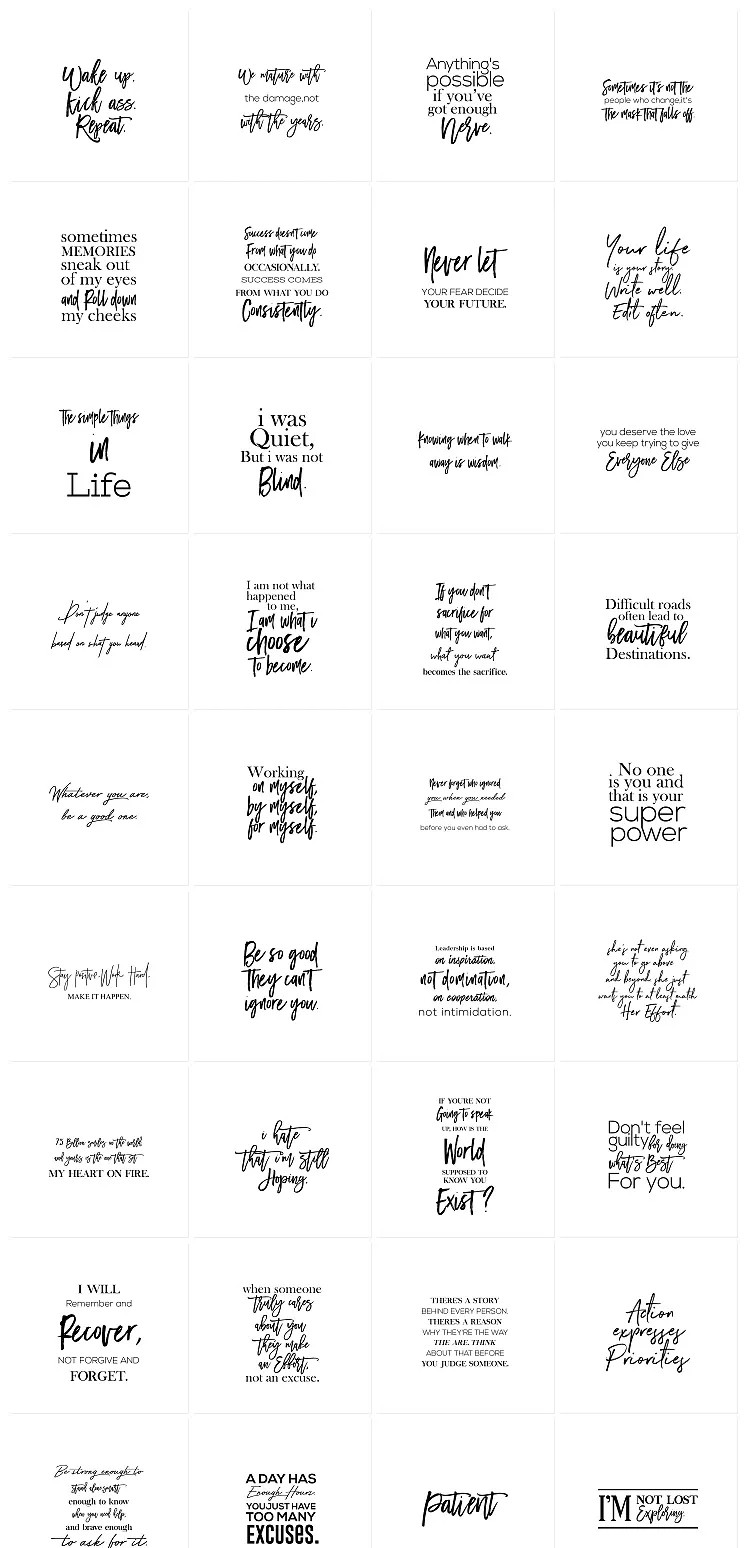 Wake up.
Kick ass.
Repeat.
We mature with
the damage,not
with the years.
Anything's
possible
if you've
got enough
Nerve.
Sometimes it's not the
people who change,it's
The mask that falls off.
sometimes
MEMORIES
sneak out
of my eyes
and Roll down
my cheeks
Success doesn't come
From what you do
OCCASIONALLY.
SUCCESS COMES
FROM WHAT YOU DO
Consistently.
Never let
YOUR FEAR DECIDE
YOUR FUTURE.
Your life
is your story.
Write well.
Edit often.
The simple things
in
Life
i was
Quiet,
But i was not
Blind.
Knowing when to walk
away is wisdom.
you deserve the love
you keep trying to give
Everyone Else
Don't judge anyone
based on what you heard.
I am not what
happened
to me,
I am what i
choose
To become.
If you don't
sacrifice for
what you want,
what you want
becomes the sacrifice.
Difficult roads
often lead to
beautiful
Destinations.
Whatever you are,
be a good one.
Working
on myself,
by myself,
for myself.
Never forget who ignored
you when you needed
Them and who helped you
before you even had to ask.
. No one
is you and
that is your
super
power
Stay positive. Work Hard.
MAKE IT HAPPEN.
Be so good
They can't
ignore you.
Leadership is based
on inspiration,
not domination,
on cooperation,
not intimidation.
she's not even asking
you to go above
and beyond she just
want you to at least match
Her Effort.
7.5 Billion smiles in the world
and yours is the one that set
MY HEART ON FIRE.
i hate
That i'm still
Hoping.
IF YOU'RE NOT
Going to speak
UP, HOW IS THE
World
SUPPOSED TO
KNOW YOU
Exist?
Don't feel
guilty for doing
what's Best
For you.
I WILL
Remember and
Recover,
NOT FORGIVE AND
FORGET.
when someone
Truly cares
about you
They make
an Effort,
not an excuse.
THERE'S A STORY
BEHIND EVERY PERSON.
THERE'S A REASON
WHY THEY'RE THE WAY
THE ARE. THINK
ABOUT THAT BEFORE
YOU JUDGE SOMEONE.
Action
expresses
Priorities
Be strong enough to
stand alone,smart
enough to know
when you need help,
and brave enough
to ask for it.
A DAY HAS
Enough Hours.
YOU JUST HAVE
TOO MANY
EXCUSES.
patient
I'M NOT LOST
Exploring.